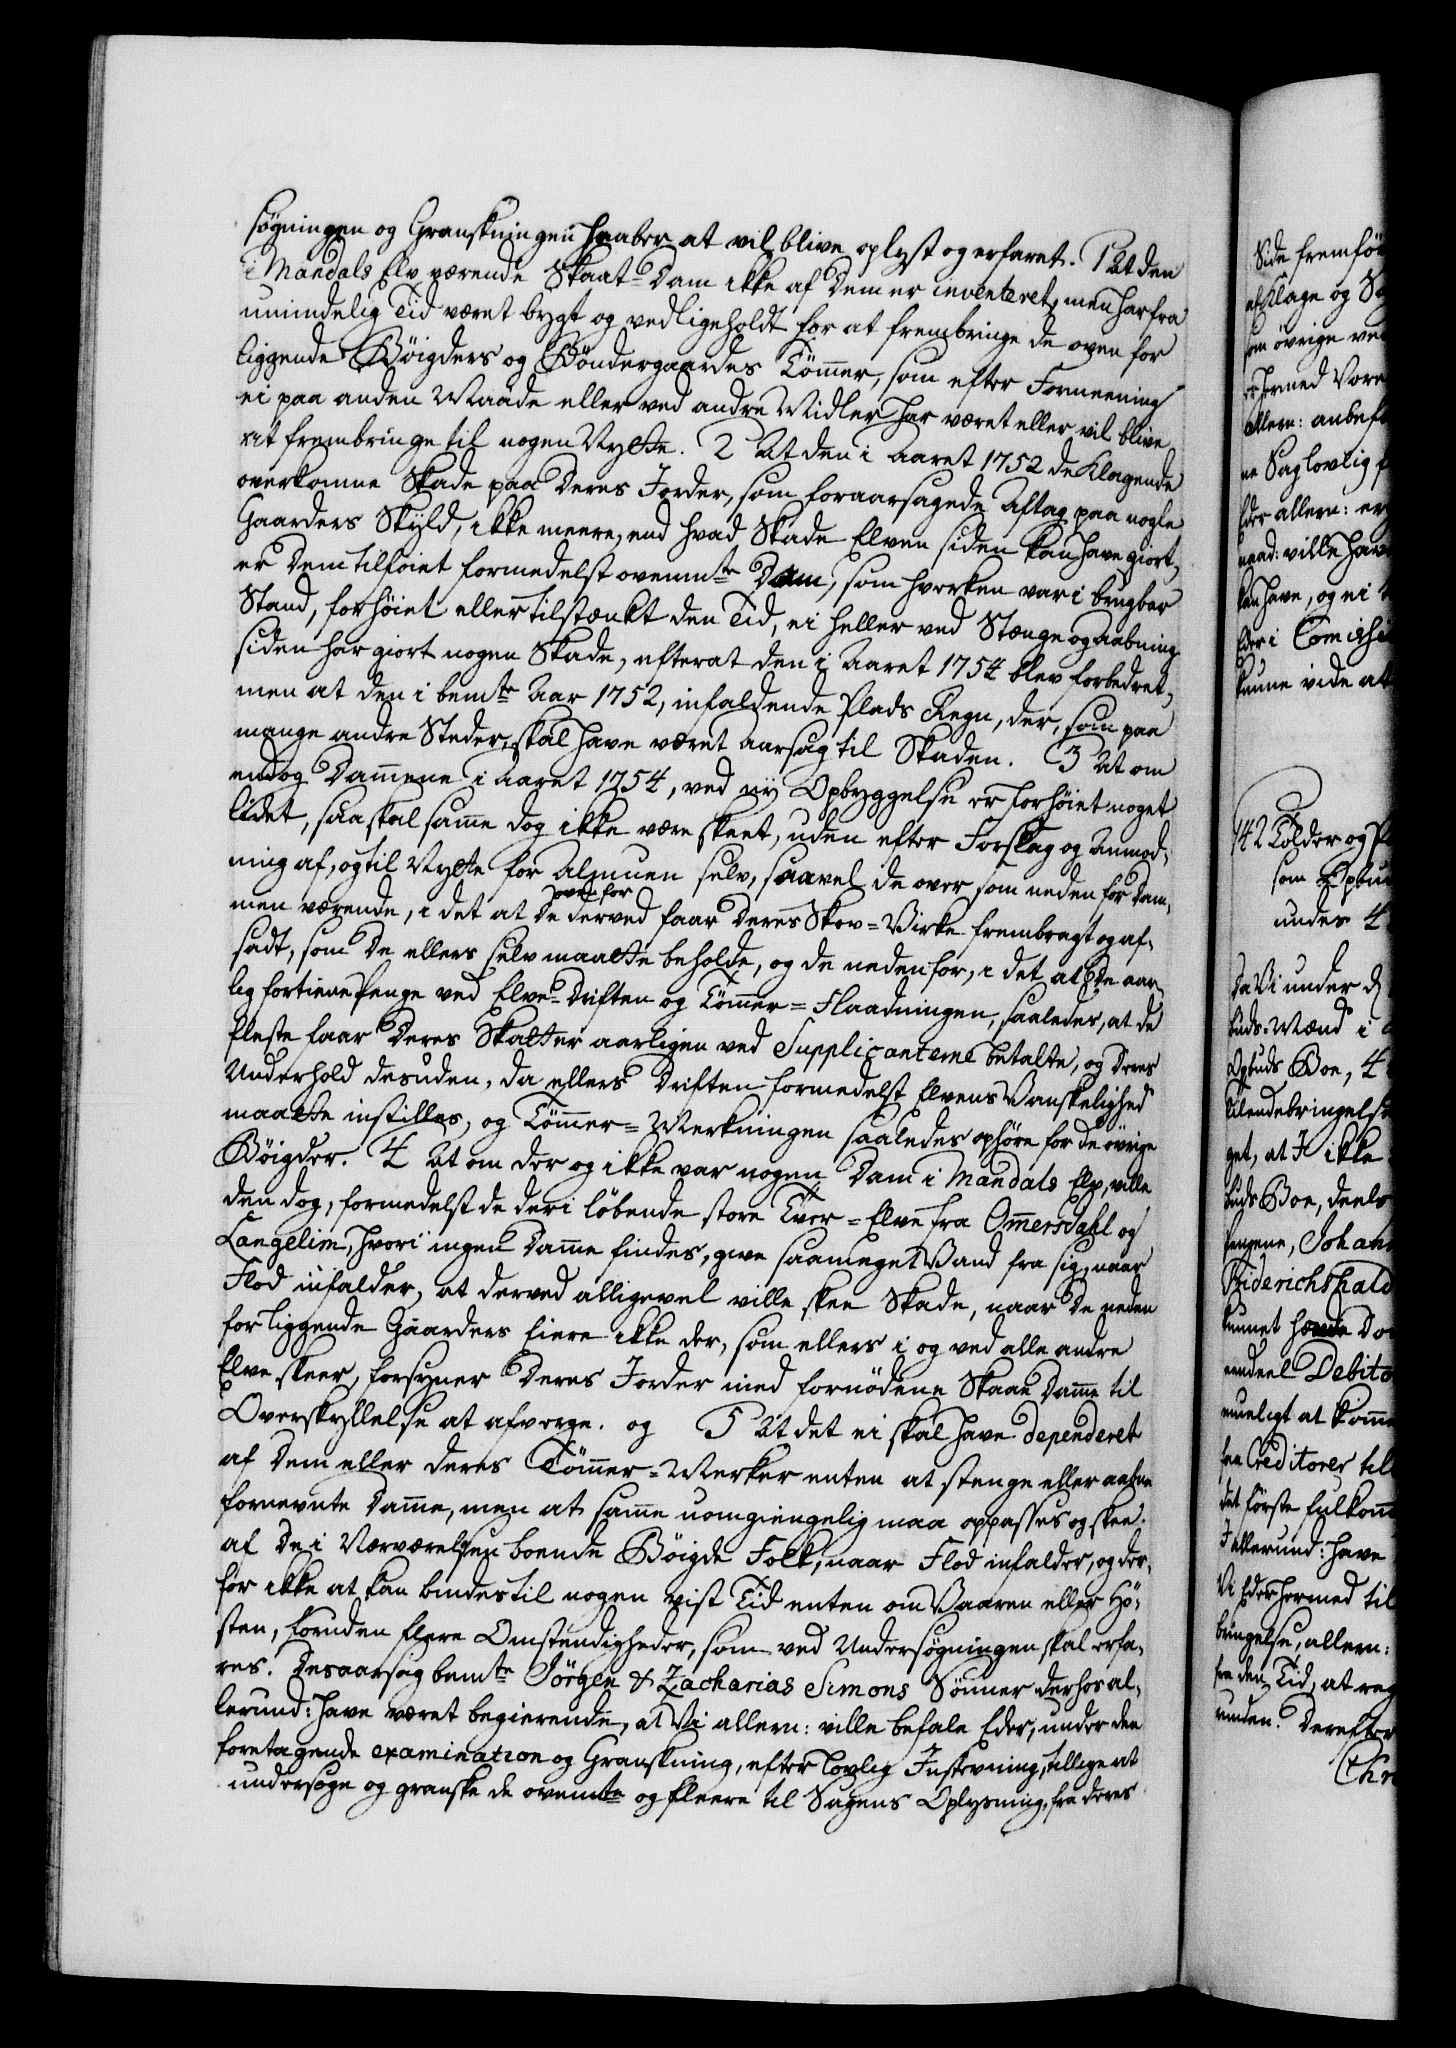 søgningen og Granskningen haaber at vil blive oplyst og erfaret. 1 At den
i Mandals Elv værende Skaat-Dam ikke af Dem er inventeret, men har fra
umindelig Tid været bygt og vedligeholdt for at frembringe de oven for
liggende Böigders og Bøndergaardes Tömmer, som efter Formeening
ei paa anden Maade eller ved andre Midler har været eller vil blive
at frembringe til nogen Nytte. 2 At den i Aaret 1752 de Klagende
overkomne Skade paa Deres Jorder, som foraarsagede Aftag paa nogle
Gaarders Skyld, ikke meere, end hvad Skade Elven siden kan have giort,
er Dem tilføiet formedelst ovenmte Dam, som hverken var i brugbar
Stand, forhöiet eller tilstænkt den Tid, ei heller ved Stænge og Aabning
siden har giort nogen Skade, efterat den i Aaret 1754 blev forbedret,
men at den i bemte Aar 1752, infaldende Plads Regn, der, som paa
mange andre Steder, skal have været Aarsag til Skaden. 3 At om
endog Damene i Aaret 1754, ved ny Opbyggelse er forhöiet noget
lidet, saa skal same dog ikke være skeet, uden efter Forslag og Anmod-
ning af, og til Nytte for Almuen selv, saavel de over som neden for Dam-
men værende, i det at De oven for derved faar Deres Skov-Virke frembragt og af-
sadt, som De ellers selv maatte beholde, og de nedenfor, i det at De aar-
lig fortiene Penge ved Elve-Driften og Tömer-Flaadningen, saaledes, at de
fleste faar Deres Skatter aarligen ved Supplicanterne betalte, og Deres
Underhold desuden, da ellers Driften formedelst Elvens Vanskelighed
maatte instilles, og Tömer-Virkningen saaledes ophöre for de övrige
Böigder. 4 At om der og ikke var nogen Dam i Mandals Elv, ville
den dog, formedelst de deri löbende store Tver-Elve fra Omersdahl og
Langelim, hvori ingen Dame findes, give saameget Vand fra sig, naar
Flod infalder, at derved alligevel ville skee Skade, naar De neden
for liggende Gaarders Eiere ikke der, som ellers i og ved alle andre
Elve skeer, forsyner Deres Jorder med fornödene Skaae Dame til
Overskyllelse at afverge. og 5 At det ei skal have dependeret
af Dem eller Deres Tömer-Merker enten at stenge eller aabne
fornevnte Dame, men at same uomgiengelig maa oppasses og skee
af De i Nærværelsen boende Böigde Folk, naar Flod infalder, og der-
for ikke at kan bindes til nogen vist Tid enten om Vaaren eller Hö-
sten, foruden flere Omstendigheder, som ved Undersögningen skal erfa-
res. Desaarsag bemte Jörgen & Zacharias Simons Sönner derhos al-
lerund: have været begierende, at Vi allern: ville befale Eder, under den
foretagende examination og Granskning, efter lovlig Instevning, tillige at
undersøge og granske de ovenmte og fleere til Sagens Oplysning, fra deres
Side fremför
at Klage og Sa
som övrige ved
er hermed Vores
allern: anbefa
ne Saglovlig
Eder allern: er
naad: ville have
kan have, og ei
Eder i Comissi
kunne vide at
142 Tolder og
som Opbud
undes 4
Da Vi under
buds-Mænd i
Opbuds Boe, 4
tilendebringelse
get, at I ikke
buds Boe, deels
pengene, Johan
Friderichshald
kunnet have
eendeel Debito
mueligt at kome
fra Creditorer til
det förste fulkom
I allerund: have
Vi Eder hermed til
bringelse, allern:
fra den Tid, at
unden. Derefter
Chr